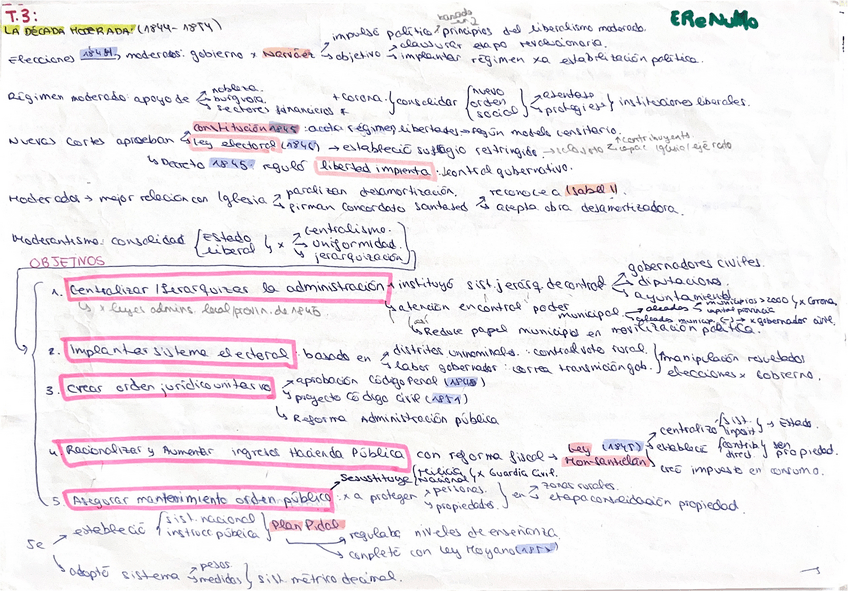 T.3:
EReNuMo
LA DÉCADA MODERADA: (1844-1854)
impulsó política principios del liberalismo moderado.
clausurar etapa revolucionaria.
Elecciones 1844, moderados: gobierno x Narváez objetivo implantar régimen xa estabilización política.
Régimen moderado: apoyo de nobleza. burguesía. sectores financieros + corona. consolidar nuevo orden social asentase protegiese instituciones liberales.
Constitución 1845: régimen libertades según modelo censitario.
Nuevas Cortes aprueban Ley electoral (1846) → estableció sufragio restringido
contribuyente
iglesia/ejército
Decreto 1845 reguló libertad imprenta: control gubernativo.
Moderados → mejor relación con Iglesia paralizan desamortización. reconoce a Isabel II.
firman Concordato Santa Sede acepta obra desamortizadora.
Moderantismo: consolidad Estado liberal x centralismo. uniformidad. jerarquización
OBJETIVOS
1. Centralizar/Jerarquizar la administración instituyó sist. jerárq de control gobernadores civiles. diputaciones. ayuntamiento
↳ x leyes admins. local/provin. de 1845
atención en control poder municipal.
municipios >2000 x Corona.
x gobernador civil.
Reduce papel municipios en movilización política.
2. Implantar sistema electoral: basado en distritos uninominales: control voto rural.
labor gobernador: correa transmisión gob.
manipulación resultados elecciones x Gobierno.
3. Crear orden jurídico unitario aprobación Código Penal (1848)
proyecto Código Civil (1851)
Reforma Administración pública
4. Racionalizar y Aumentar ingresos Hacienda Pública con reforma fiscal → Ley (1845) Mon-Santillán
centralizó sist. imposit → Estado.
estableció contrib. direct. sen propiedad.
creó impuesto en consumo.
Sesustituye Milicia Nacional x Guardia Civil.
5. Asegurar mantenimiento orden público: xa proteger personas. propiedades. en zonas rurales.
etapa consolidación propiedad.
Se estableció sist. nacional instrucc pública Plan Pidal
regulaba niveles de enseñanza
completó con Ley Moyano (1857)
adoptó sistema pesos medidas sist. métrico decimal.